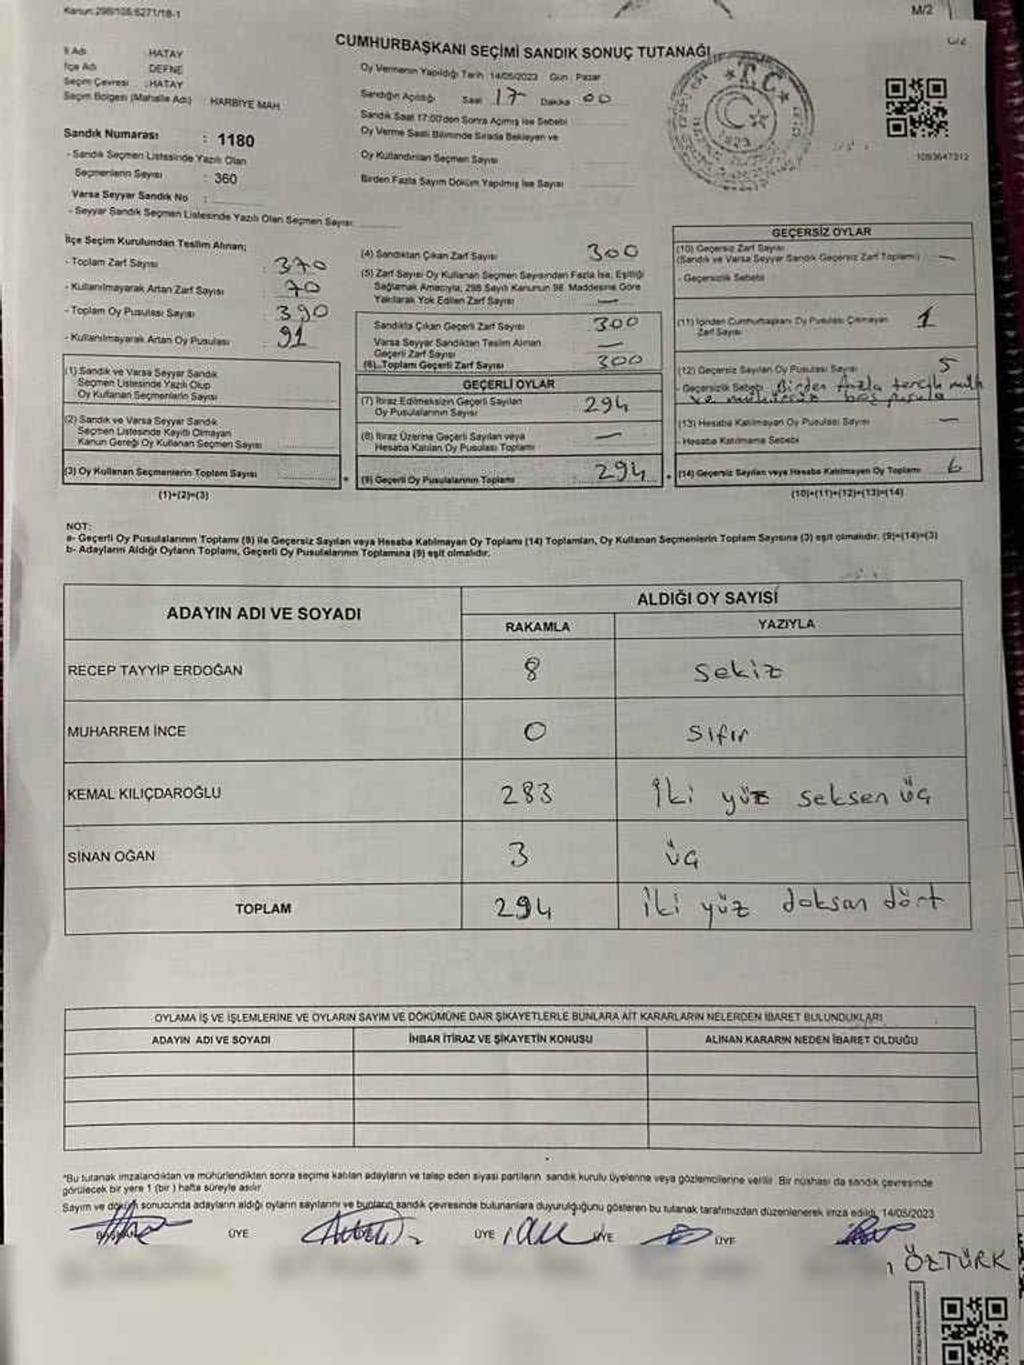 Kanun:298/105:6271/18-1
M/2
CUMHURBAŞKANI SEÇİMİ SANDIK SONUÇ TUTANAĞI
İl Adı : HATAY
İlçe Adı : DEFNE
Seçim Çevresi : HATAY
Seçim Bölgesi (Mahalle Adı) : HARBİYE MAH
Sandık Numarası : 1180
- Sandık Seçmen Listesinde Yazılı Olan
Seçmenlerin Sayısı : 360
Varsa Seyyar Sandık No :
- Seyyar Sandık Seçmen Listesinde Yazılı Olan Seçmen Sayısı:
Oy Vermenin Yapıldığı Tarih :14/05/2023 Gün : Pazar
Sandığın Açıldığı Saat 17 Dakika 00
Sandık Saat 17:00'den Sonra Açılmış İse Sebebi
Oy Verme Saati Bitiminde Sırada Bekleyen ve
Oy Kullandırılan Seçmen Sayısı
Birden Fazla Sayım Döküm Yapılmış İse Sayısı
T.C.
1923
1093647312
İlçe Seçim Kurulundan Teslim Alınan;
- Toplam Zarf Sayısı : 370
- Kullanılmayarak Artan Zarf Sayısı : 70
- Toplam Oy Pusulası Sayısı : 390
- Kullanılmayarak Artan Oy Pusulası : 91
(1) Sandık ve Varsa Seyyar Sandık
Seçmen Listesinde Yazılı Olup
Oy Kullanan Seçmenlerin Sayısı
(2) Sandık ve Varsa Seyyar Sandık
Seçmen Listesinde Kayıtlı Olmayan
Kanun Gereği Oy Kullanan Seçmen Sayısı
(3) Oy Kullanan Seçmenlerin Toplam Sayısı
(1)+(2)=(3)
(4) Sandıktan Çıkan Zarf Sayısı 300
(5) Zarf Sayısı Oy Kullanan Seçmen Sayısından Fazla İse, Eşitliği
Sağlamak Amacıyla, 298 Sayılı Kanunun 98. Maddesine Göre
Yakılarak Yok Edilen Zarf Sayısı —
Sandıkta Çıkan Geçerli Zarf Sayısı 300
Varsa Seyyar Sandıkten Teslim Alınan
Geçerli Zarf Sayısı —
(6) Toplam Geçerli Zarf Sayısı 300
GEÇERLİ OYLAR
(7) İtiraz Edilmeksizin Geçerli Sayılan
Oy Pusulalarının Sayısı 294
(8) İtiraz Üzerine Geçerli Sayılan veya
Hesaba Katılan Oy Pusulası Toplamı —
(9) Geçerli Oy Pusulalarının Toplamı : 294
GEÇERSİZ OYLAR
(10) Geçersiz Zarf Sayısı
(Sandık ve Varsa Seyyar Sandık Geçersiz Zarf Toplamı) —
- Geçersizlik Sebebi
(11) İçinden Cumhurbaşkanı Oy Pusulası Çıkmayan
Zarf Sayısı 1
(12) Geçersiz Sayılan Oy Pusulası Sayısı 5
- Geçersizlik Sebebi Birden fazla tercih
ve mühürsüz boş pusula
(13) Hesaba Katılmayan Oy Pusulası Sayısı —
- Hesaba Katılmama Sebebi
(14) Geçersiz Sayılan veya Hesaba Katılmayan Oy Toplamı 6
(10)+(11)+(12)+(13)=(14)
NOT:
a- Geçerli Oy Pusulalarının Toplamı (9) ile Geçersiz Sayılan veya Hesaba Katılmayan Oy Toplamı (14) Toplamları, Oy Kullanan Seçmenlerin Toplam Sayısına (3) eşit olmalıdır. (9)+(14)=(3)
b- Adayların Aldığı Oyların Toplamı, Geçerli Oy Pusulalarının Toplamına (9) eşit olmalıdır.
ADAYIN ADI VE SOYADI
ALDIĞI OY SAYISI
RAKAMLA YAZIYLA
RECEP TAYYİP ERDOĞAN 8 Sekiz
MUHARREM İNCE 0 Sıfır
KEMAL KILIÇDAROĞLU 283 İki yüz seksen üç
SİNAN OĞAN 3 üç
TOPLAM 294 İki yüz doksan dört
OYLAMA İŞ VE İŞLEMLERİNE VE OYLARIN SAYIM VE DÖKÜMÜNE DAİR ŞİKAYETLERLE BUNLARA AİT KARARLARIN NELERDEN İBARET BULUNDUKLARI
ADAYIN ADI VE SOYADI İHBAR İTİRAZ VE ŞİKAYETİN KONUSU ALINAN KARARIN NEDEN İBARET OLDUĞU
*Bu tutanak imzalandıktan ve mühürlendikten sonra seçime katılan adayların ve talep eden siyasi partilerin sandık kurulu üyelerine veya gözlemcilerine verilir. Bir nüshası da sandık çevresinde
görülecek bir yere 1 (bir) hafta süreyle asılır.
Sayım ve döküm sonucunda adayların aldığı oyların sayılarını ve bunların sandık çevresinde bulunanlara duyurulduğunu gösteren bu tutanak tarafımızdan düzenlenerek imza edildi. 14/05/2023
BAŞKAN ÜYE ÜYE ÜYE ÜYE
ÖZTÜRK